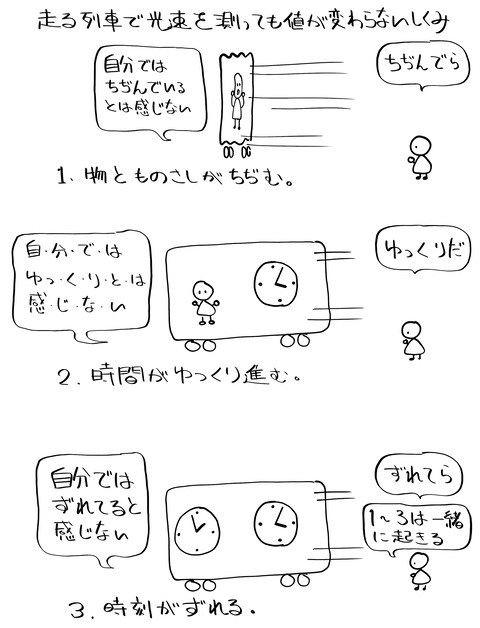 走る列車で光速を測っても値が変わらないしくみ
自分では
ちぢんでいる
とは感じない
ちぢんでら
1、物とものさしがちぢむ。
自・分・で・は
ゆっ・く・り・と・は
感・じ・な・い
ゆっくりだ
2、時間がゆっくり進む。
自分では
ずれてると
感じない
ずれてら
1〜3は一緒
に起きる
3、時刻がずれる。